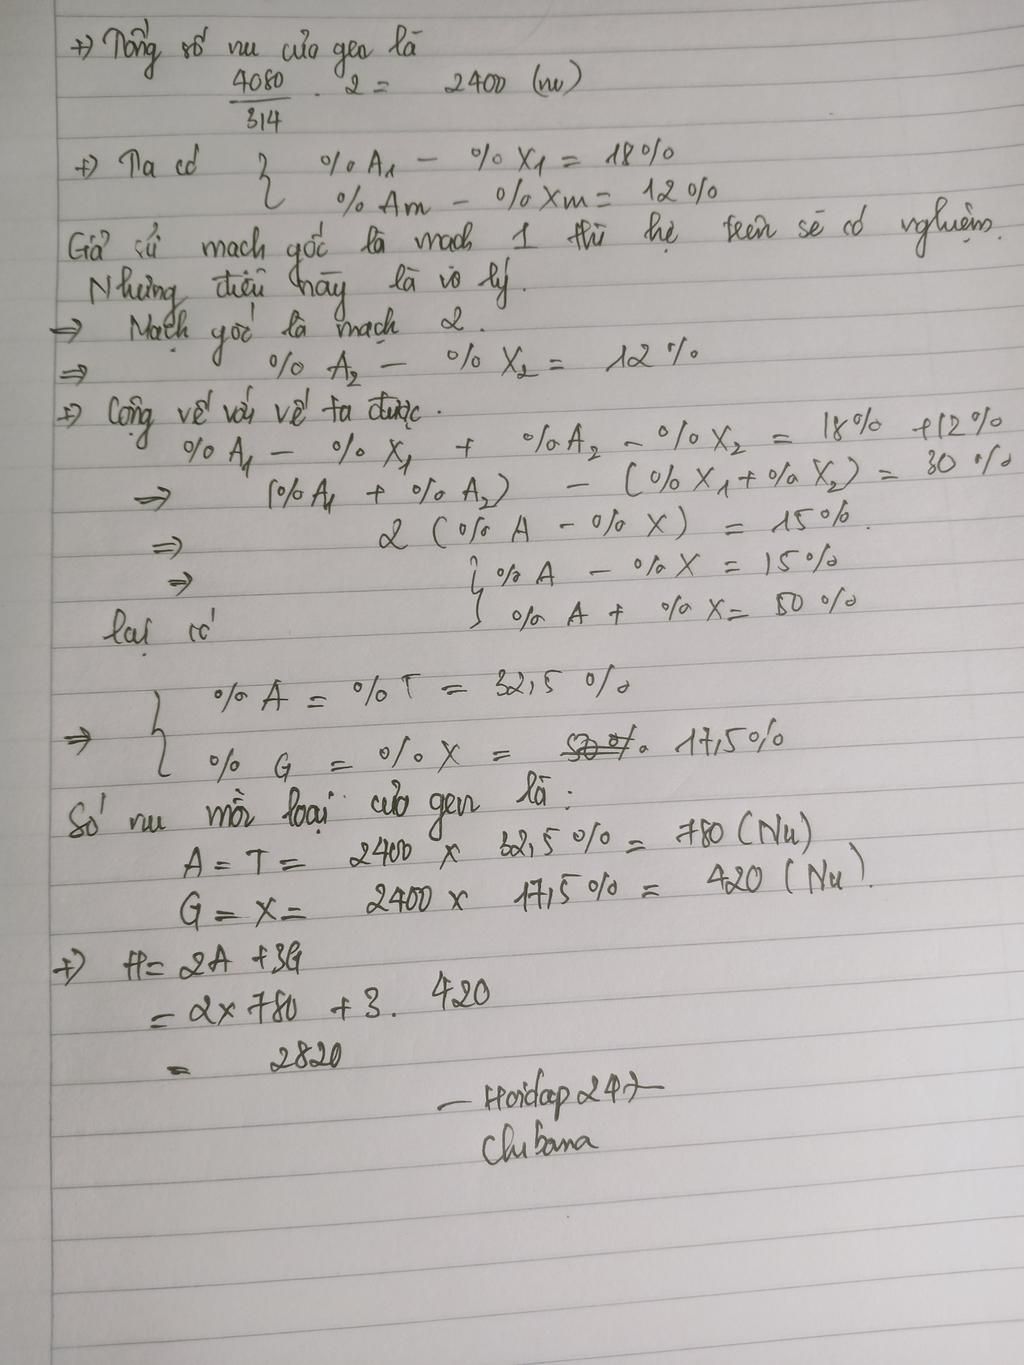 +) Tổng số nu của gen là
4080/314 . 2 = 2400 (nu)
+) Ta có { % A₁ - % X₁ = 18%
% Am - % Xm = 12 %
Giả sử mạch gốc là mạch 1 thì hệ trên sẽ có nghiệm.
Nhưng điều này là vô lý.
=> Mạch gốc là mạch 2.
=> % A₂ - % X₂ = 12 %
+) Cộng vế với vế ta được.
% A₁ - % X₁ + % A₂ - % X₂ = 18% + 12%
=> (% A₁ + % A₂) - (% X₁ + % X₂) = 30 %
=> 2 (% A - % X) = 15%.
=> { % A - % X = 15%
lại có % A + % X = 50 %
=> { % A = % T = 32,5 %
% G = % X = 17,5%
Số nu mỗi loại của gen là:
A = T = 2400 x 32,5% = 780 (Nu)
G = X = 2400 x 17,5% = 420 (Nu).
+) H = 2A + 3G
= 2 x 780 + 3. 420
= 2820
- Hoidap247 -
Chibana